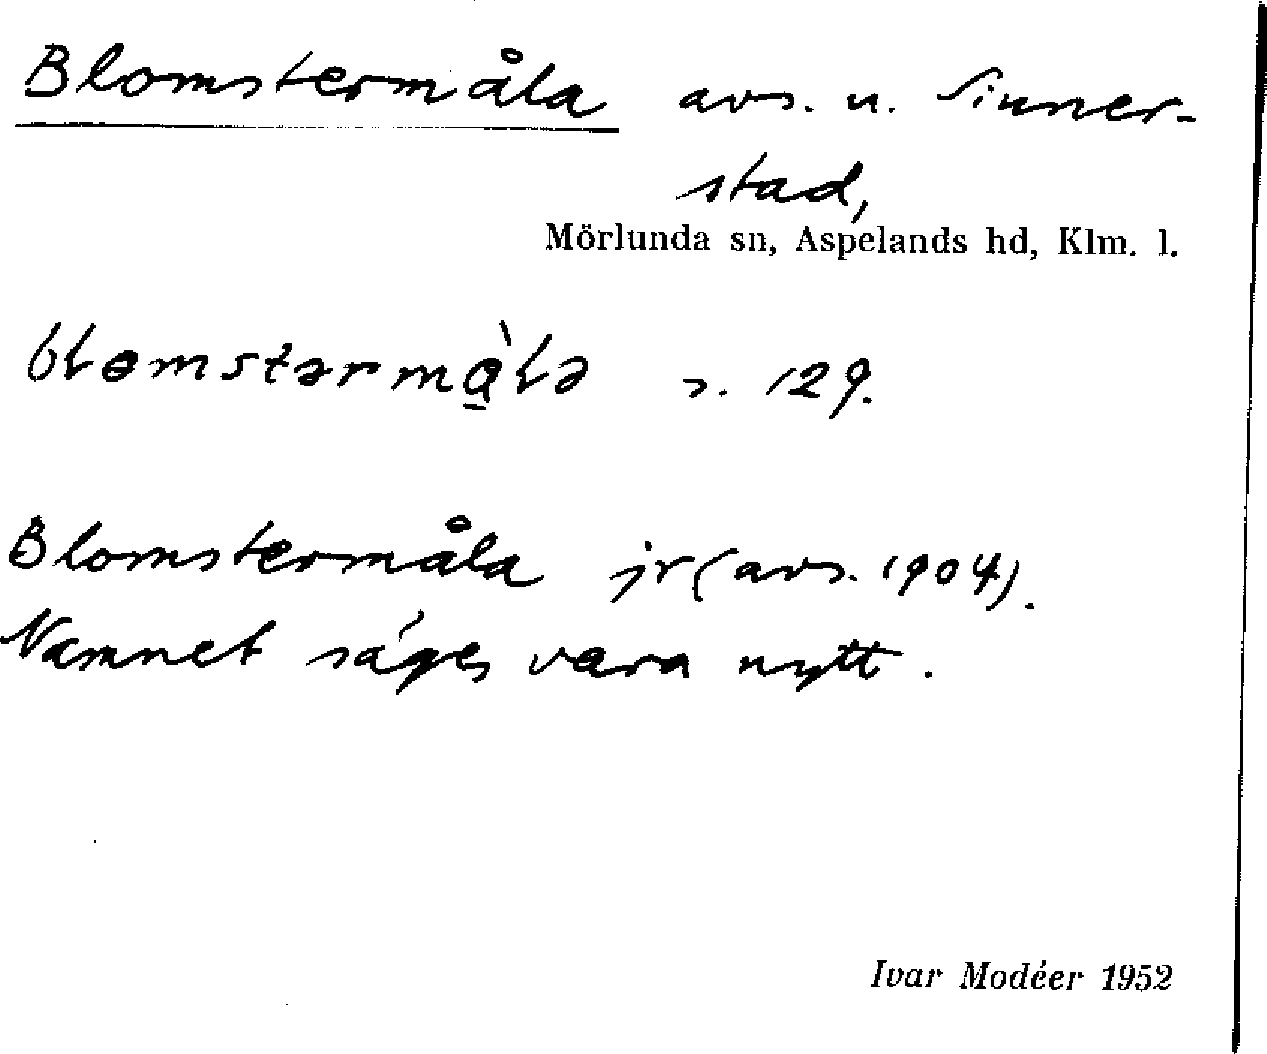 Blomstermåla avs. u. Sinner-
stad,
Mörlunda sn, Aspelands hd, Klm. l.
s. 129.
Blomstermåla jr (avs. 1904).
Namnet säges vara nytt.
Ivar Modéer 1952